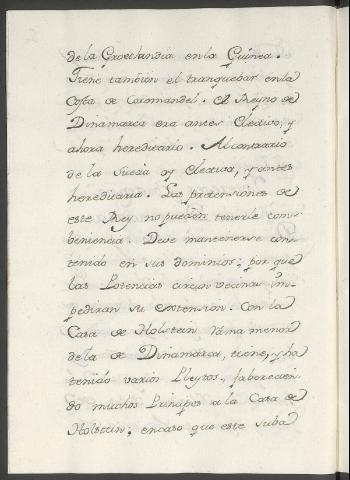 de la Groetlandia en la Guinea.
Tiene tambien el tranquebar en la
Costa de Coromandel. El Reyno de
Dinamarca era antes Electivo, y
ahora hereditario. Al contrario
de la Suecia oy electiva, y antes
hereditaria. Las pretensiones de
este Rey no pueden tenerle com-
beniencia. Deve mantenerse con-
tenido en sus dominios; por que
las Potencias circun vecinas im-
pediran su extension. Con la
Casa de Holstein rama menor
de la de Dinamarca, tiene, y ha
tenido varios Pleytos, faborecien-
do muchos Principes a la Casa de
Holstein; en caso que este suba